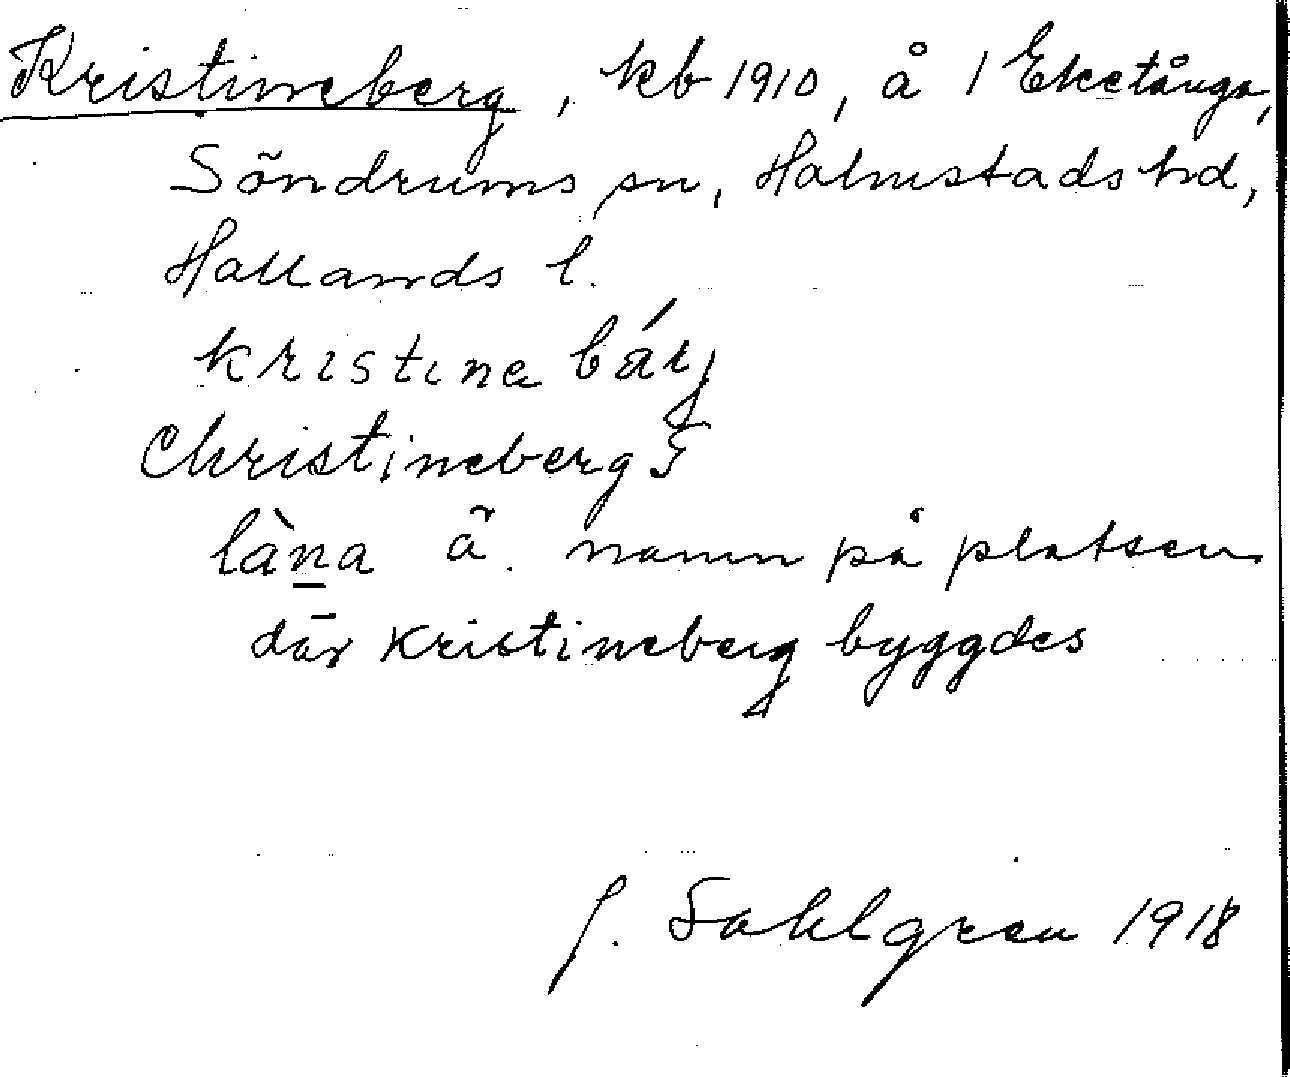 Kristineberg, kb 1910, å 1 Eketånga,
Söndrums sn, Halmstads hd,
Hallands l.
kristinə bárj
Christineberg J
làna ä. namn på platsen
där Kristineberg byggdes
J. Sahlgren 1918